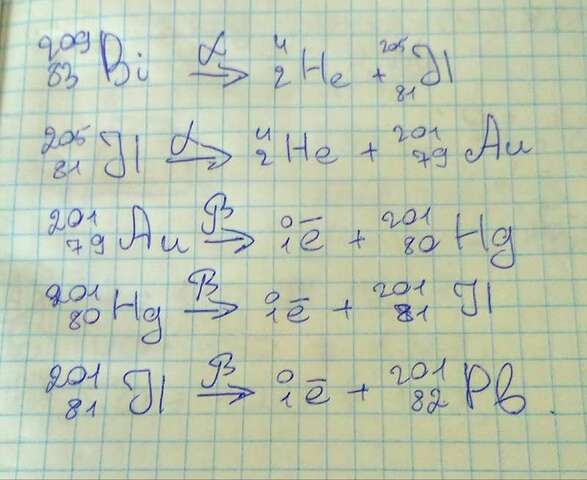 ²⁰⁹₈₃Bi α→ ⁴₂He + ²⁰⁵₈₁Tl
²⁰⁵₈₁Tl α→ ⁴₂He + ²⁰¹₇₉Au
²⁰¹₇₉Au β→ ⁰₁ē + ²⁰¹₈₀Hg
²⁰¹₈₀Hg β→ ⁰₁ē + ²⁰¹₈₁Tl
²⁰¹₈₁Tl β→ ⁰₁ē + ²⁰¹₈₂Pb.